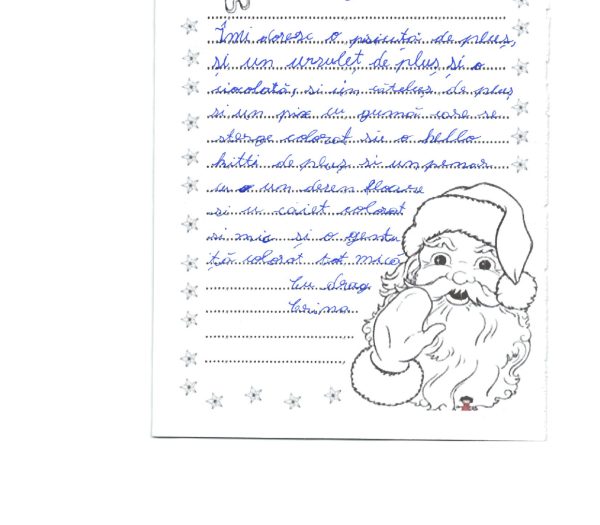 Îmi doresc o pisicuță de pluș,
și un ursuleț de pluș și o
ciocolată, și un cățeluș de pluș
si un pix cu gumă care se
sterge colorat si o hello
kitti de pluș si un penar
cu un desen floare
si u caiet colorat
si mic și o gentu
ță colorat tot mică
Cu drag
Crina